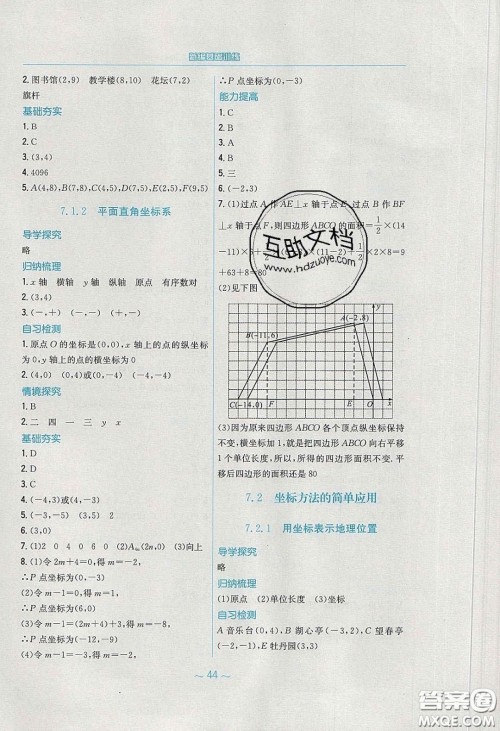 新编基础训练
2. 图书馆(2,9) 教学楼(8,10) 花坛(7,2)
旗杆
基础夯实
1. B
2. C
3. (3,4)
4. 4096
5. A(4,8),B(7,8),C(4,5),D(7,5),E(2,5),F(9,5)
7.1.2 平面直角坐标系
导学探究
略
归纳梳理
1. x轴 横轴 y轴 纵轴 原点 有序数对
自习检测
1. 原点O的坐标是(0,0),x轴上的点的纵坐标
为0,y轴上的点的横坐标为0
2. (4,0),(5,1)或(3,-1)
情境探究
1. B
2. 二 四 一 三 y x
基础夯实
1. B
2. D
3. D
4. (-4,3)或(4,3)
5. (-3,5) 2
6. (-3,0)
7. (1)2 0 4 0 6 0 (2)A₄ₙ(2n,0) (3)向上
8. (1)令2m+4=0,得m=-2,
∴P点坐标为(0,-3)
(2)令m-1=0,得m=1,
∴P点坐标为(6,0)
(3)令m-1=(2m+4)+3,得m=-8,
∴P点坐标为(-12,-9)
(4)令m-1=-3,得m=-2,
∴P点坐标为(0,-3)
能力提高
1. C
2. B
3. B
4. A
5. 三
6. (-2,3)
7. (1)过点A作AE⊥x轴于点E,过点B作BF
⊥x轴于点F,则四边形ABCO的面积=1/2×(14
+63+8=80
(2)见下图
y
A(-2,8)
B(-11,6)
C(-14,0) F E O x
(3)因为原来四边形ABCO各个顶点纵坐标保持
不变,横坐标加1,就是把四边形ABCO向右平移
1个单位长度,所以,所得的四边形面积不变.平
移后四边形的面积还是80
7.2 坐标方法的简单应用
7.2.1 用坐标表示地理位置
导学探究
略
归纳梳理
(1)原点 (2)单位长度 (3)坐标
自习检测
A音乐台(0,4),B湖心亭(-3,2),C望春亭
(-2,-1),E牡丹园(3,3)
~ 44 ~
互助文档
www.hdzuoye.com
答案圈
MXQE.COM